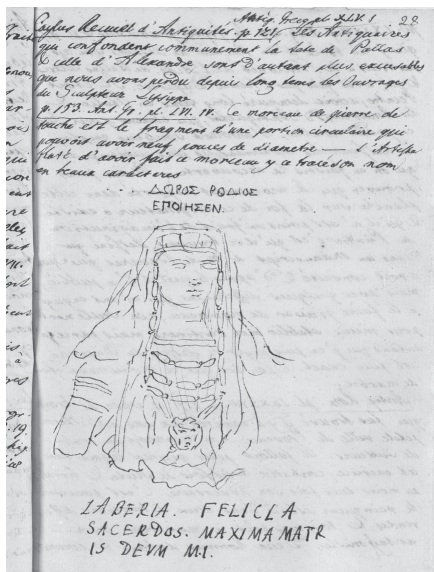 Antiq. Grecq. pl. XLV. 1
29
Caylus Recueil d'Antiquites. p. 121. Les Antiquaires
qui confondent communement la tete de Pallas
& celle d'Alexandre sont d'autant plus excusables
que nous avons perdu depuis long tems les Ouvrages
du Sculpteur Lysippe
p. 153. Ant. Gr. pl. LVI. IV. Ce morceau de pierre de
touche est le fragment d'une portion circulaire qui
pouvoit avoir neuf pouces de diametre — L'Artiste
flaté d'avoir fait ce morceau y a tracé son nom
en beaux caracteres
ΔΩΡΟΣ ΡΟΔΙΟΣ
ΕΠΟΙΗΣΕΝ.
LABERIA. FELICLA
SACERDOS. MAXIMA MATR
IS DEVM M.I.